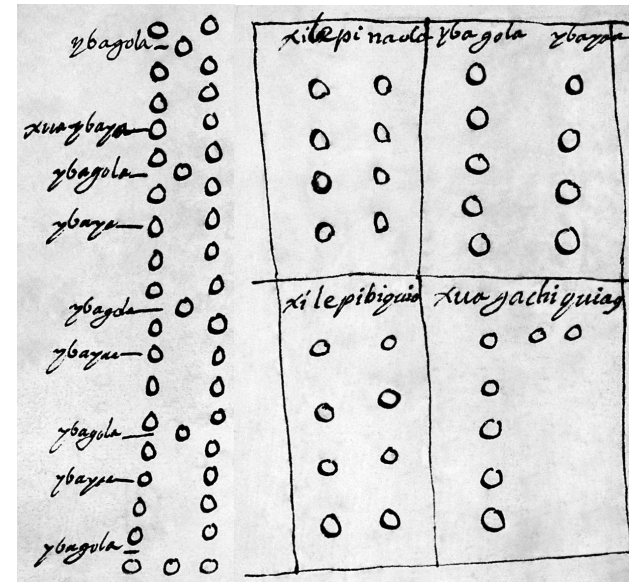 ybagola
xuaybaya
ybagola
ybaye
ybagola
ybayae
ybagola
ybaye
ybagola
xilepinaola ybagola ybayaa
xilepibiquio xuagachiquiag